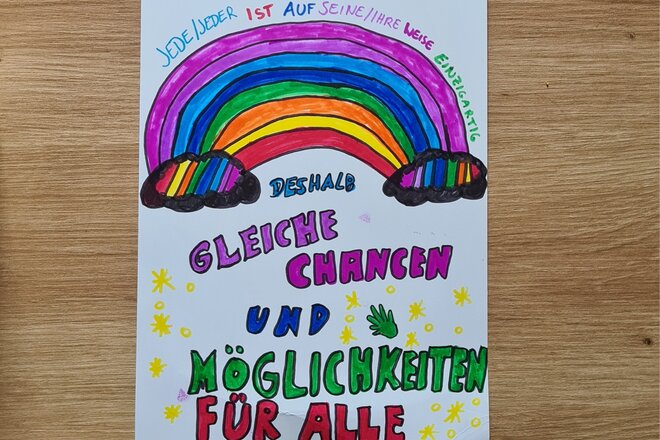 JEDE/JEDER IST AUF SEINE/IHRE WEISE EINZIGARTIG
DESHALB
GLEICHE
CHANCEN
UND
MÖGLICHKEITEN
FÜR ALLE